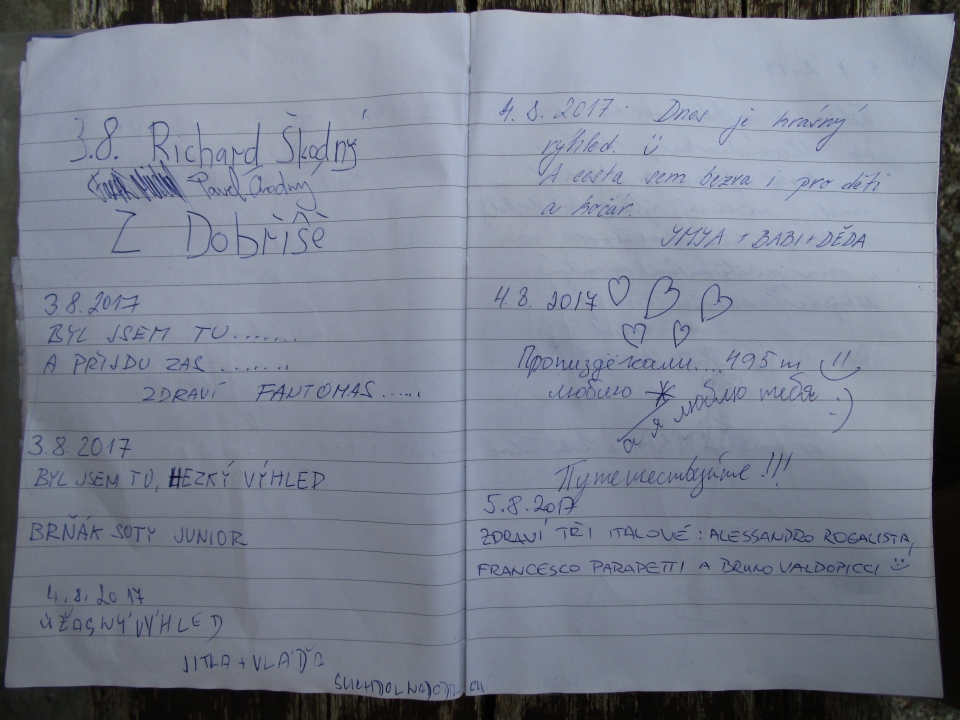 3.8. Richard Škodný
Pavel Chodný
Z Dobříše
3.8.2017
BYL JSEM TU.......
A PŘIJDU ZAS .......
ZDRAVÍ FANTOMAS......
3.8.2017
BYL JSEM TU, HEZKÝ VÝHLED.
BRŇÁK SOTY JUNIOR
4.8.2017
ÚŽASNÝ VÝHLED
JITKA + VLÁĎA
4.8.2017. Dnes je krásný
výhled. ü
A cesta sem bezva i pro děti
a kočár.
+ BABI + DĚDA
4.8. 2017 ♡ ♡ ♡
♡ ♡
Пропиздёхали...495 m
люблю
а я люблю тебя :)
Путешествуйте !!!
5.8.2017
ZDRAVÍ TŘI ITALOVÉ : ALESSANDRO ROGALISTA,
FRANCESCO PARAPETTI A BRUNO VALDOPICCI ☺